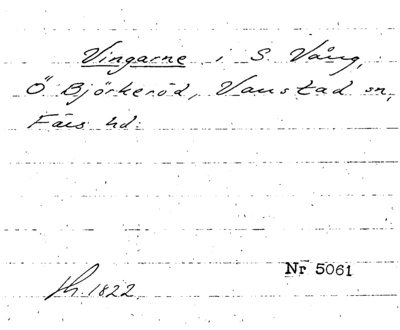 Vingarne i S. Vång,
Ö Björkeröd, Vanstad sn,
Färs hd.
Nr 5061
1822